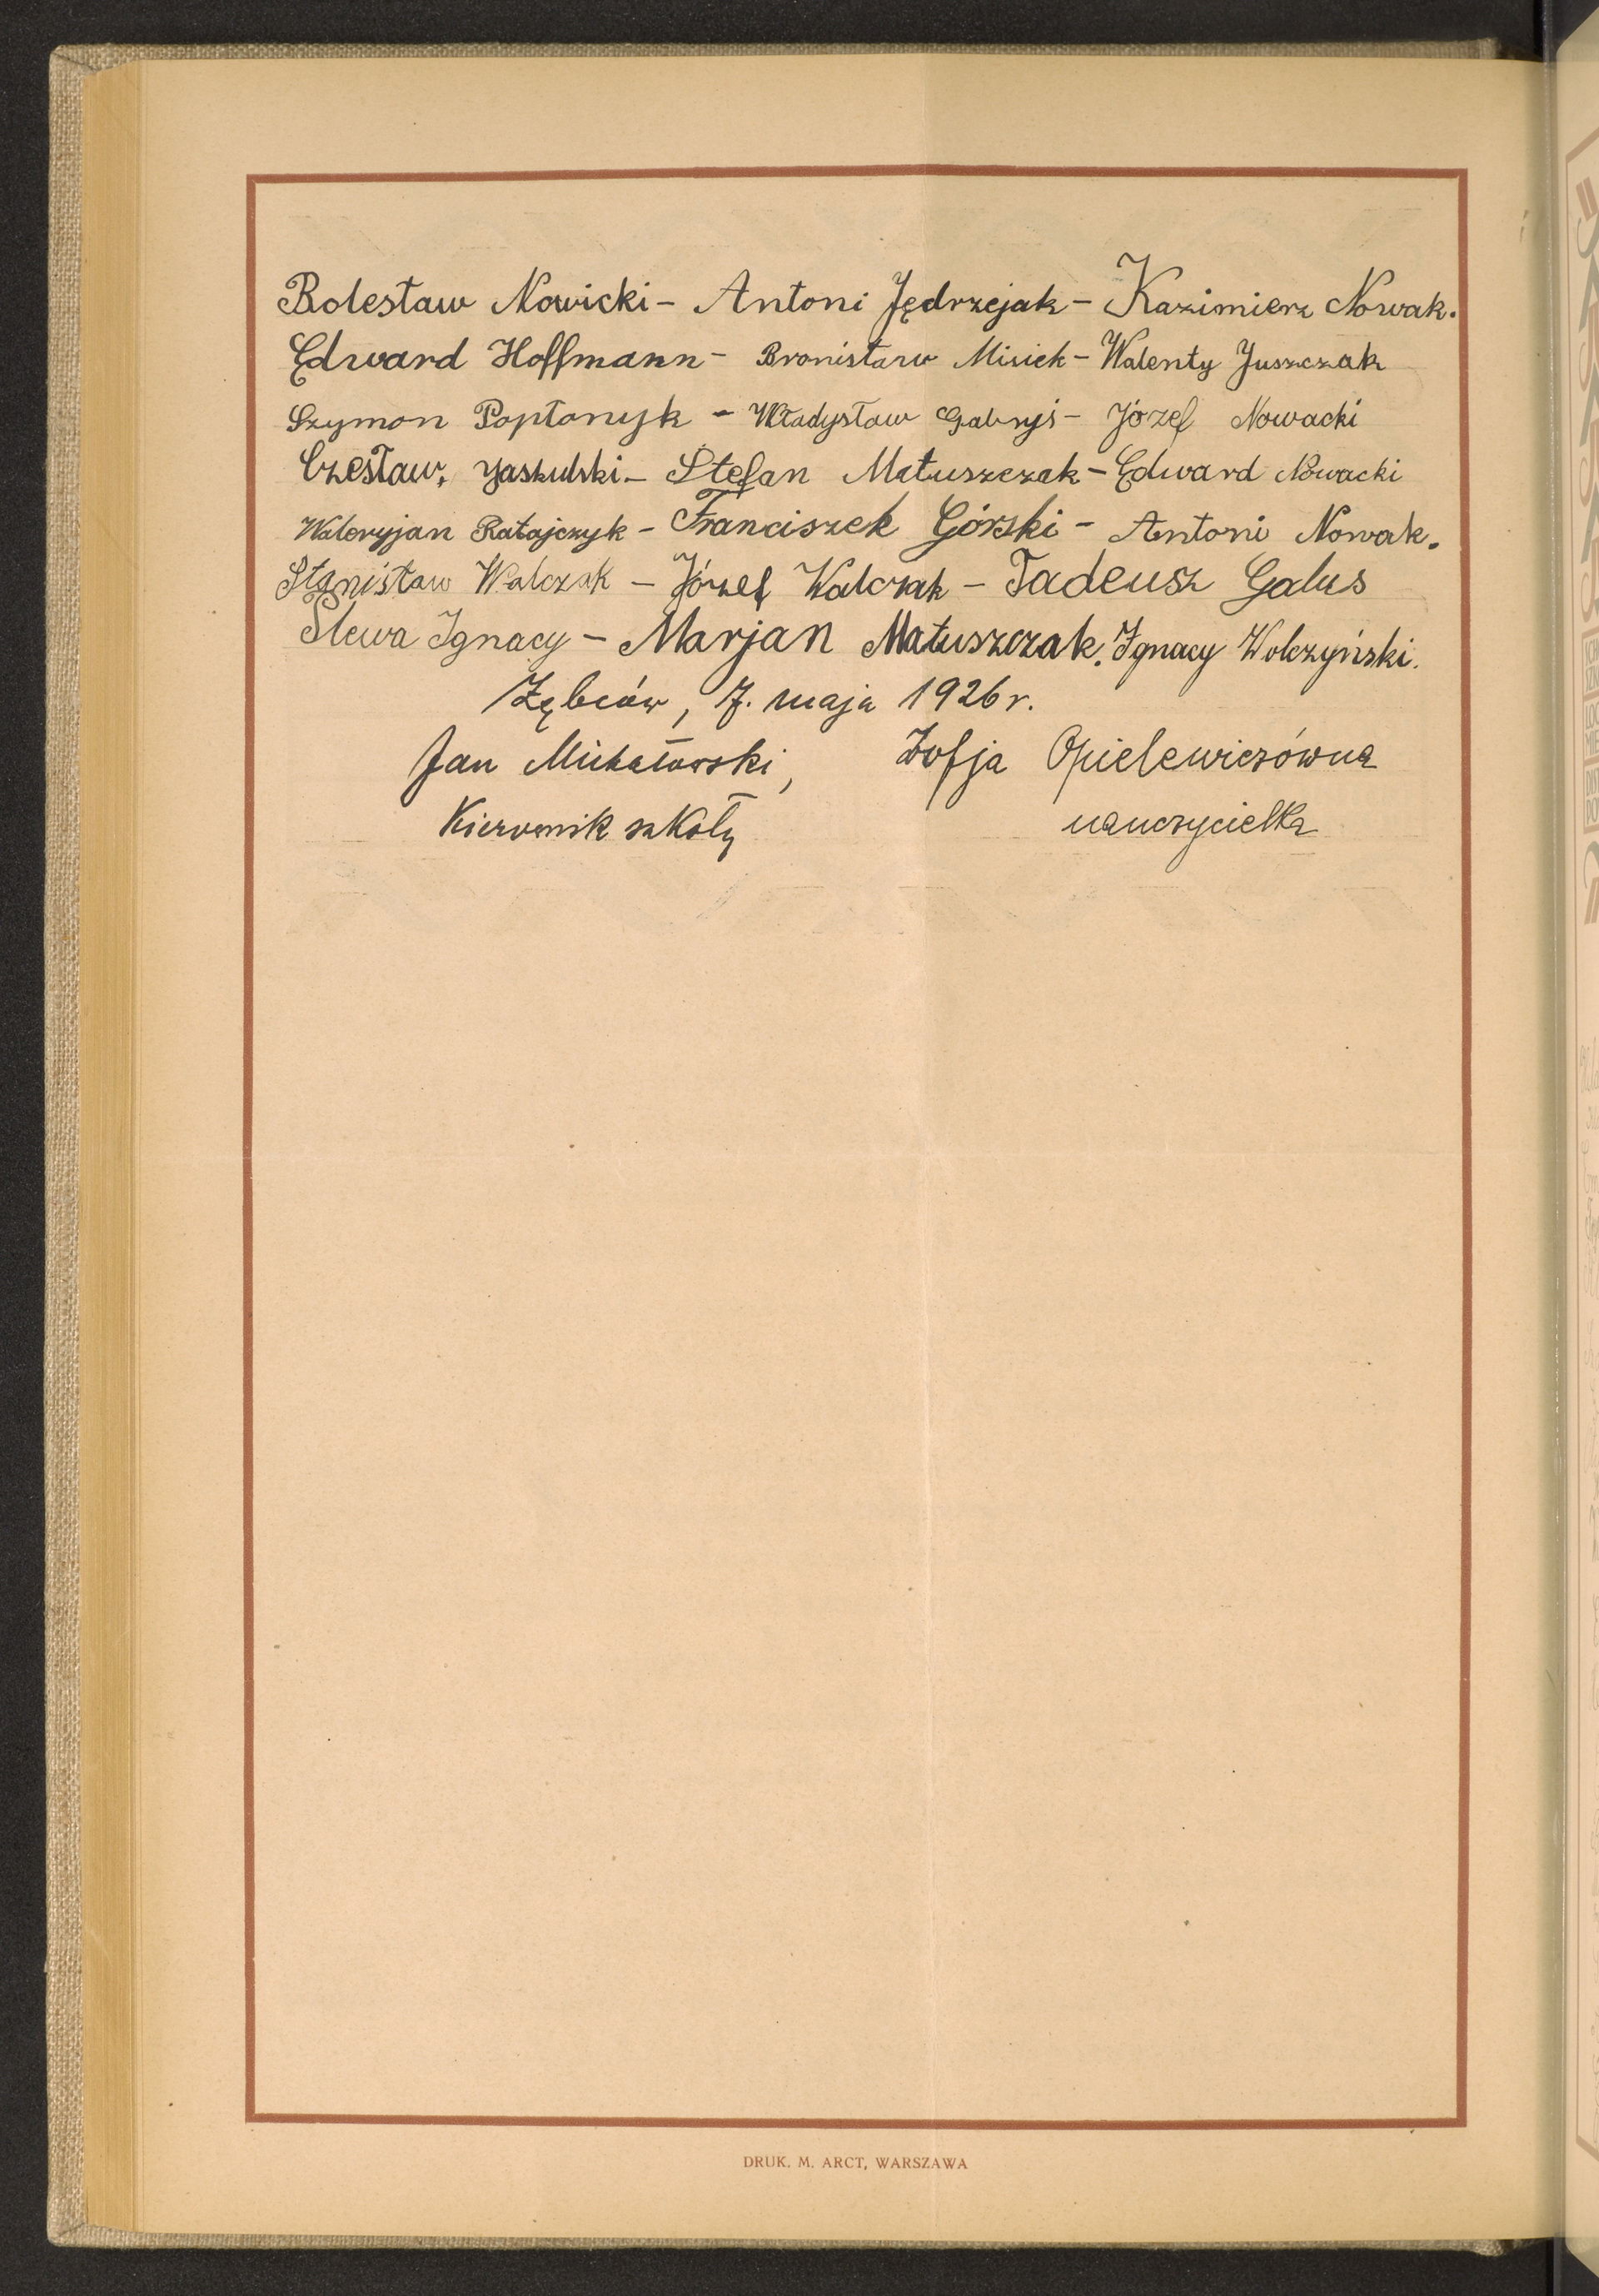 Bolesław Nowicki - Antoni Jędrzejak - Kazimierz Nowak.
Edward Hoffmann - Bronisław Misiek - Walenty Juszczak
Szymon Popłonyk - Władysław Gabryś - Józef Nowacki
Czesław, Jaskulski - Stefan Matuszczak - Edward Nowacki
Waleryjan Ratajczyk - Franciszek Górski - Antoni Nowak.
Stanisław Walczak - Józef Walczak - Tadeusz Galus
Ślewa Ignacy - Marjan Matuszczak. Ignacy Wolczyński.
Zębców, 7. maja 1926 r.
Jan Michałowski, Zofja Opielewiczówna
Kierownik szkoły nauczycielka
DRUK. M. ARCT, WARSZAWA